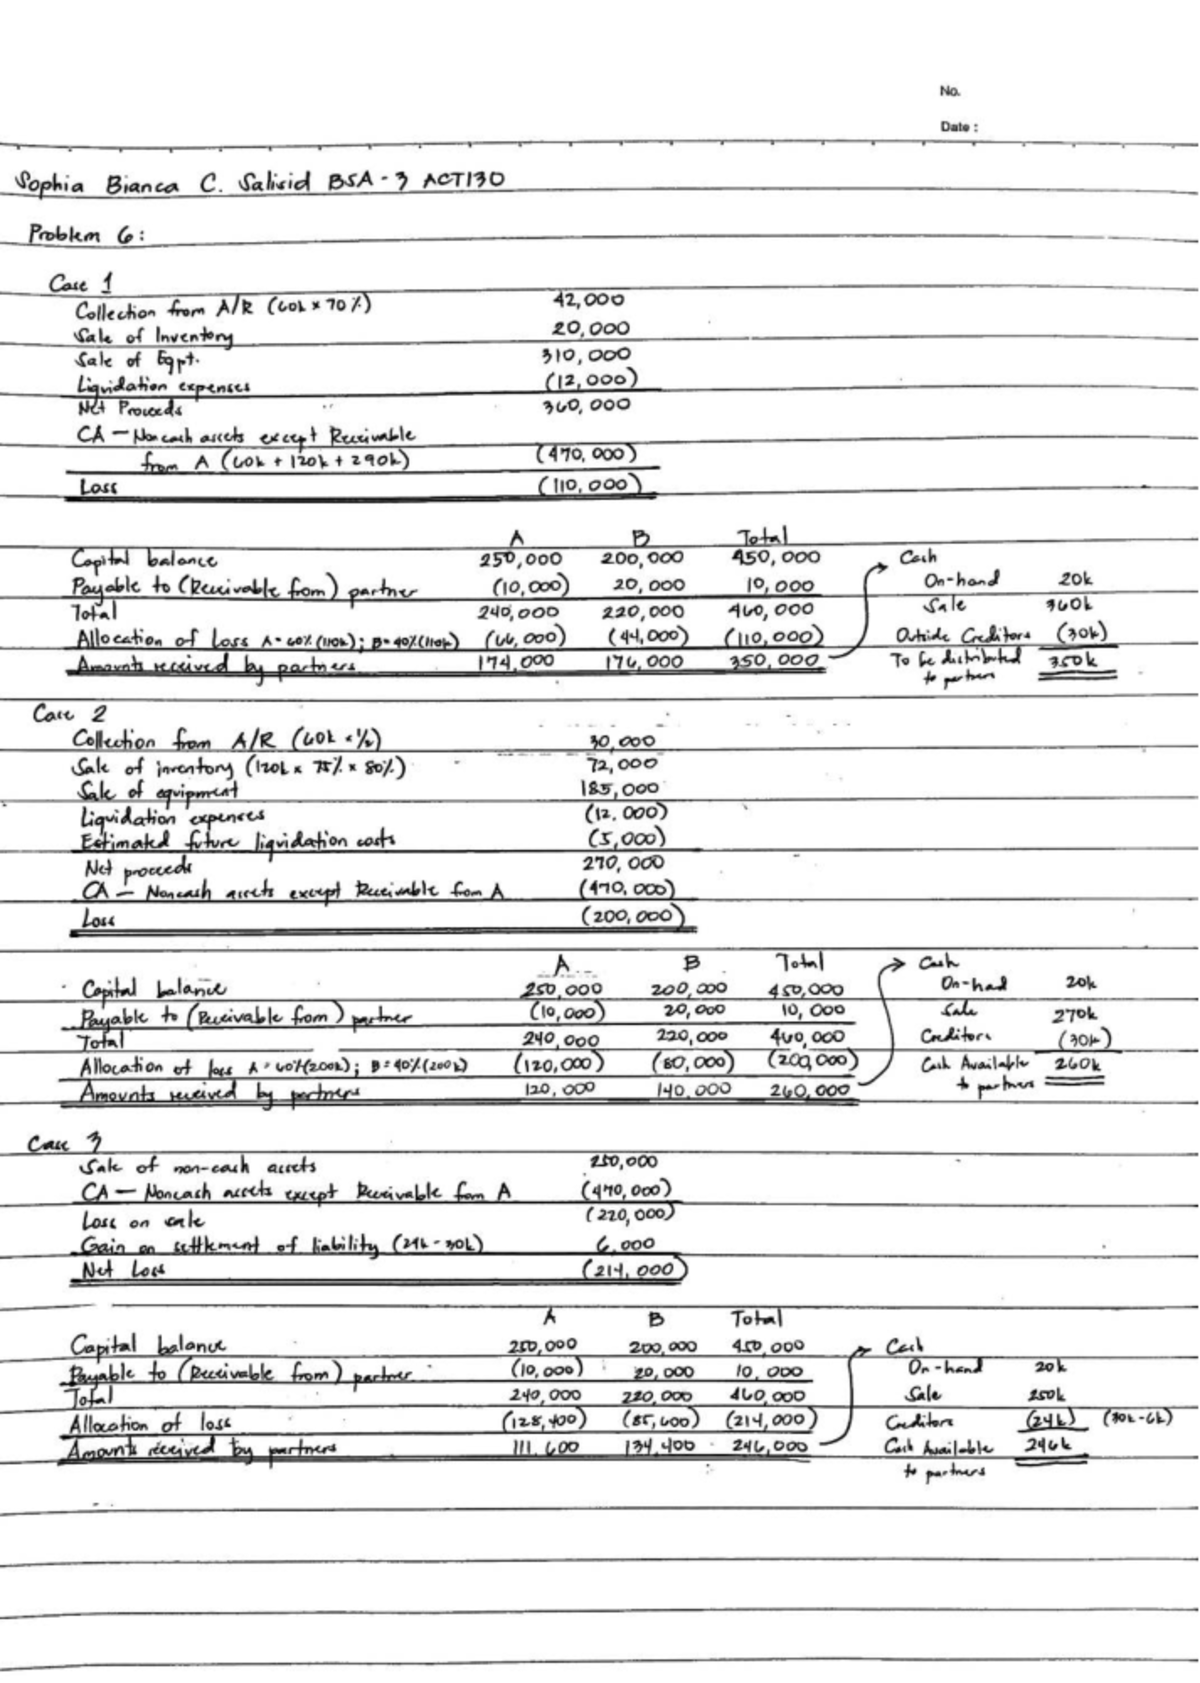 No.
Date :
Sophia Bianca C. Salisid BSA-3 ACT130
Problem 6:
Case 1
Collection from A/R (60k x 70%) 42,000
Sale of Inventory 20,000
Sale of Eqpt. 310,000
Liquidation expenses (12,000)
Net Proceeds 360,000
CA - Noncash assets except Receivable
from A (60k + 120k + 290k) (470,000)
Loss (110,000)
A B Total
Capital balance 250,000 200,000 450,000
Payable to (Receivable from) partner (10,000) 20,000 10,000
Total 240,000 220,000 460,000
Allocation of Loss A = 60% (110k); B = 40% (110k) (66,000) (44,000) (110,000)
Amounts received by partners 174,000 176,000 350,000
Cash
On-hand 20k
Sale 360k
Outside Creditors (30k)
To be distributed 350k
to partners
Case 2
Collection from A/R (60k x 1/2) 30,000
Sale of inventory (120k x 75% x 80%) 72,000
Sale of equipment 185,000
Liquidation expenses (12,000)
Estimated future liquidation costs (5,000)
Net proceeds 270,000
CA - Noncash assets except Receivable from A (470,000)
Loss (200,000)
A B Total
Capital balance 250,000 200,000 450,000
Payable to (Receivable from) partner (10,000) 20,000 10,000
Total 240,000 220,000 460,000
Allocation of loss A = 60% (200k); B = 40% (200k) (120,000) (80,000) (200,000)
Amounts received by partners 120,000 140,000 260,000
Cash
On-had 20k
Sale 270k
Creditors (30k)
Cash Available 260k
to partners
Case 3
Sale of non-cash assets 250,000
CA - Noncash assets except Receivable from A (470,000)
Loss on sale (220,000)
Gain on settlement of liability (24k - 30k) 6,000
Net Loss (214,000)
A B Total
Capital balance 250,000 200,000 450,000
Payable to (Receivable from) partner (10,000) 20,000 10,000
Total 240,000 220,000 460,000
Allocation of loss (128,400) (85,600) (214,000)
Amounts received by partners 111,600 134,400 246,000
Cash
On-hand 20k
Sale 250k
Creditors (24k) (30k-6k)
Cash Available 246k
to partners